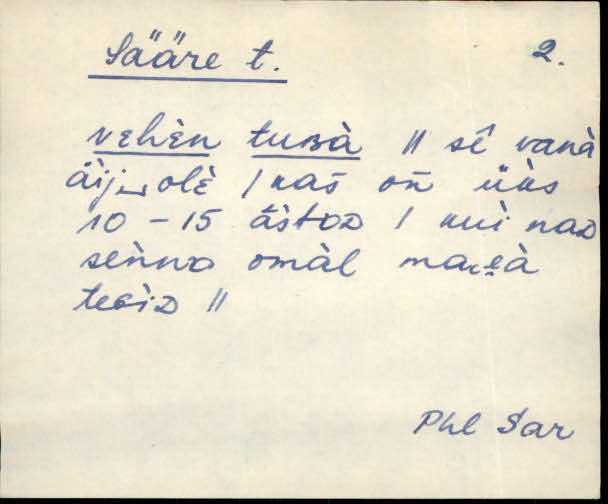 Sääre t. 2.
vehèn tuʙà || sē̂ vanà
äij‿olè / kas on üks
10 – 15 āstoᴅ / kui naᴅ
senno omàl
teɢiᴅ ||
Phl Sar